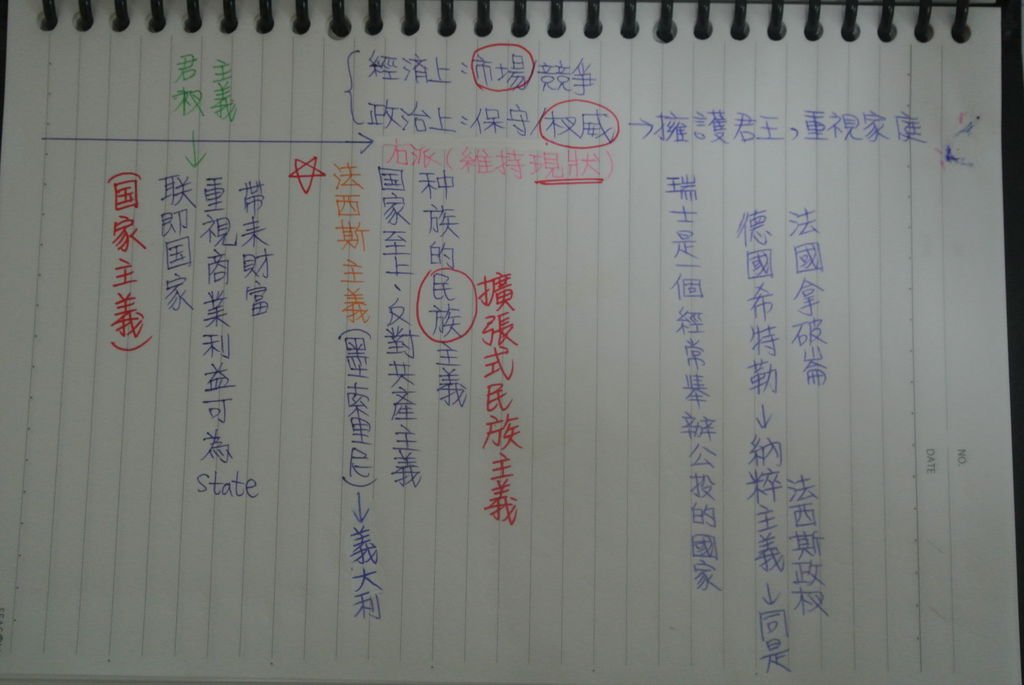 君权
主義
經濟上:市場/競爭
政治上:保守/权威→擁護君王,重視家庭
右派(維持現狀)
(国家主義)
联即国家
重視商業利益可為state
帶來財富
法西斯主義(墨索里尼)→義大利
国家至上、反對共產主義
种族的民族主義
擴張式民族主義
瑞士是一個經常舉辦公投的國家
德國希特勒→納粹主義→同是
法西斯政权
法國拿破崙
NO.
DATE